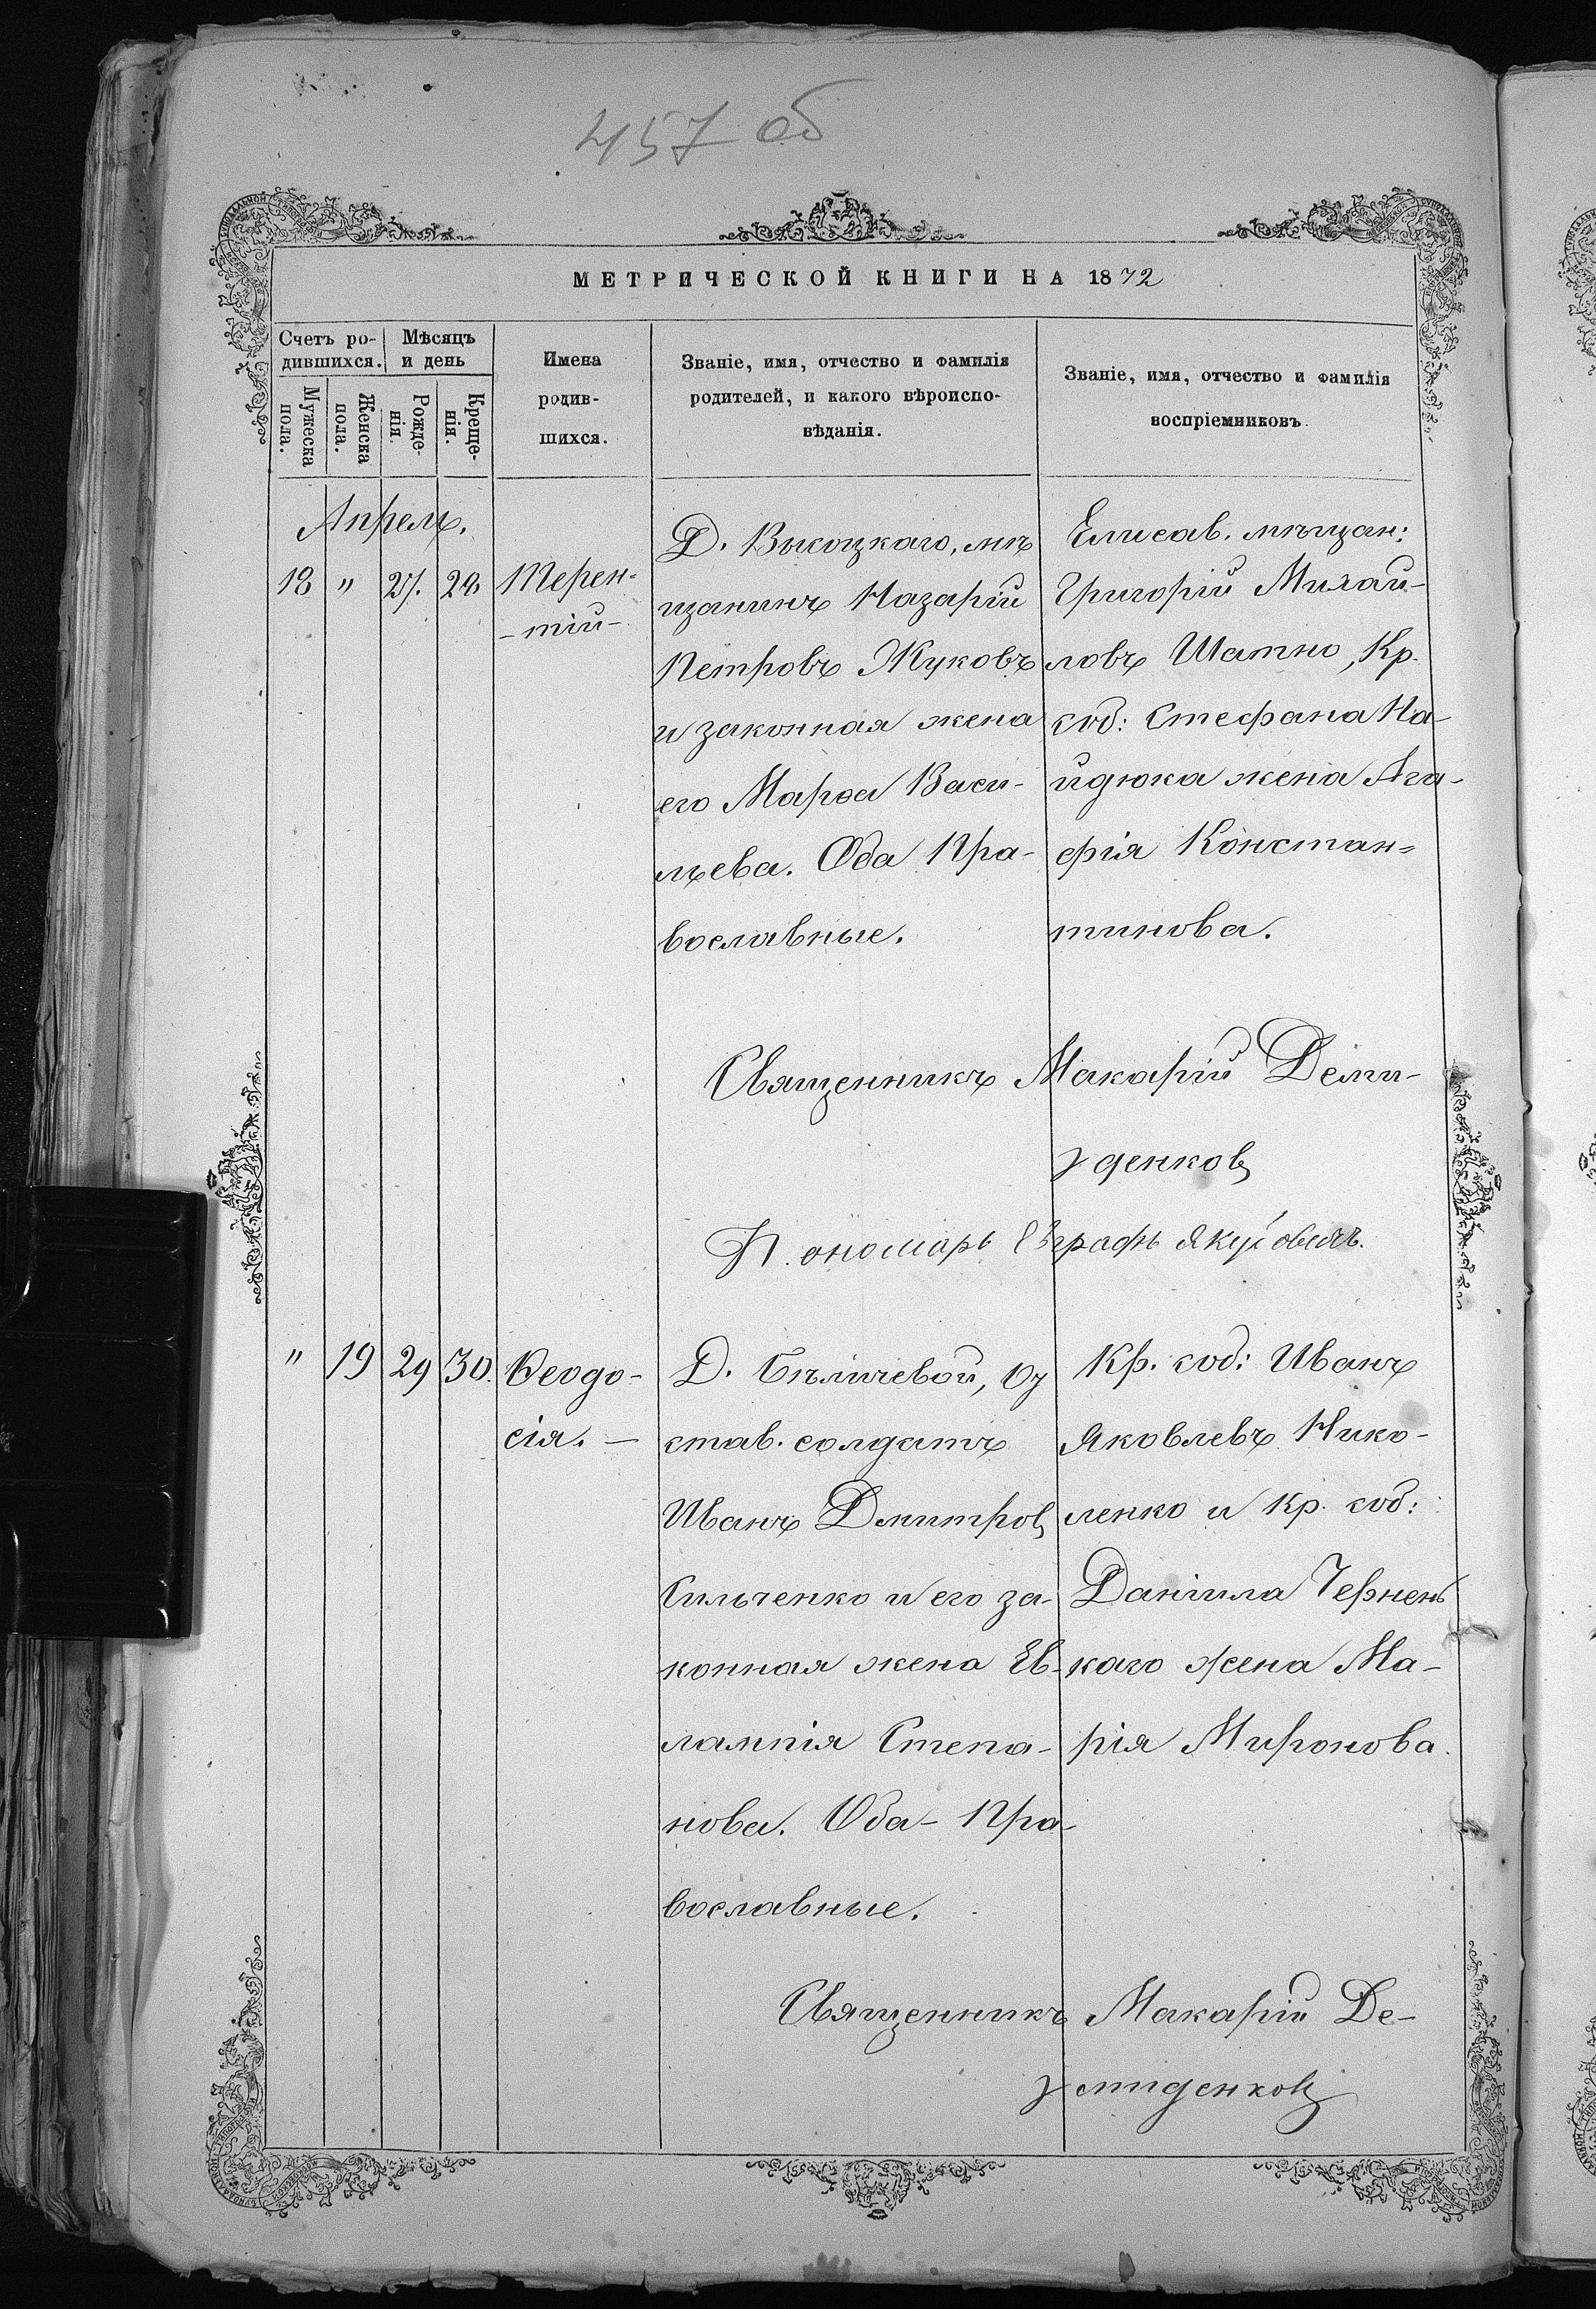 457 об
МЕТРИЧЕСКОЙ КНИГИ НА 1872
Счетъ ро-
дившихся.
Мужеска
пола.
Женска
пола.
Мѣсяцъ
и день
Рожде-
нія.
Креще-
нія.
Имена
родив-
шихся.
Званіе, имя, отчество и фамилія
родителей, и какого вѣроиспо-
вѣданія.
Званіе, имя, отчество и фамилія
воспріемниковъ
Апрель.
18 " 27. 28
Терен-
-тій-
Д. Высоцкаго, мѣ
щанинъ Назарій
Петровъ Жуковъ
и законная жена
его Марѳа Васи-
льева. Оба Пра-
вославные.
Елисав. мѣщан:
Григорій Михай-
ловъ Шатно, Кр.
соб: Стефана На-
йдюка жена Ага-
фія Констан=
тинова.
Священникъ Макарій Деми-
денковъ
Пономарь Евграфъ
" 19 29 30.
Ѳеодо-
сія. —
Д. Бѣличевой, От
став. солдатъ
Иванъ Дмитровъ
Сильченко и его за-
конная жена Ев-
лампія Степа-
нова. Оба - Пра-
вославные.
Кр. соб: Иванъ
Яковлевъ Нико-
ленко и Кр. соб:
Даніила Чернень
каго жена Ма-
рія Миронова.
Священникъ Макарій Де-
миденковъ